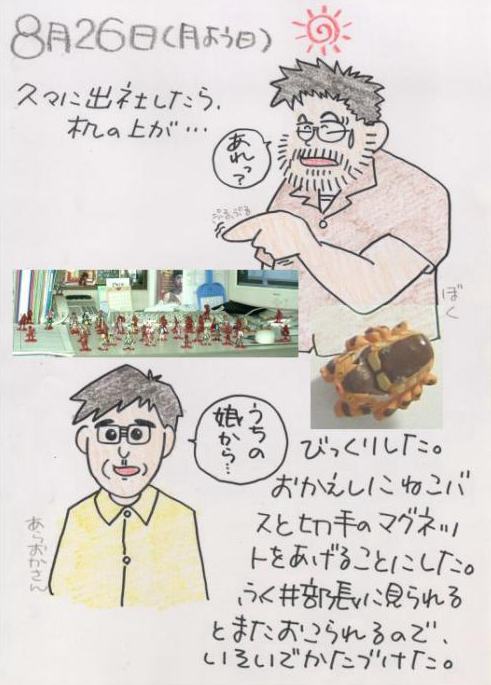 8月26日(月よう日)
久マに出社したら、
机の上が…
あれっ?
ぷるぷる
ぼく
うちの
娘から…
あらおかさん
びっくりした。
おかえしにねこバ
スと切手のマグネッ
トをあげることにした。
ふく井部長に見られる
とまたおこられるので、
いそいでかたづけた。